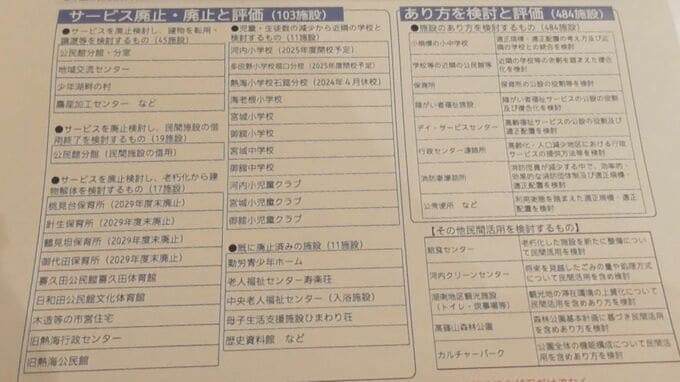 サービス廃止・廃止と評価（103施設）
●サービスを廃止検討し、建物を転用・
譲渡等を検討するもの（45施設）
公民館分館・分室
地域交流センター
少年湖畔の村
農産加工センター など
●サービスを廃止検討し、民間施設の借
用終了を検討するもの（19施設）
公民館分館（民間施設の借用）
●サービスを廃止検討し、老朽化から建
物解体を検討するもの（17施設）
桃見台保育所（2029年度末廃止）
針生保育所（2029年度末廃止）
鶴見坦保育所（2029年度末廃止）
御代田保育所（2029年度末廃止）
喜久田公民館喜久田体育館
日和田公民館文化体育館
木造等の市営住宅
旧熱海行政センター
旧熱海公民館
●児童・生徒数の減少から近隣の学校と
検討するもの（11施設）
河内小学校（2025年度閉校予定）
多田野小学校堀口分校（2025年度閉校予定）
熱海小学校石筵分校（2024年４月休校）
海老根小学校
宮城小学校
御舘小学校
宮城中学校
御舘中学校
河内小児童クラブ
宮城小児童クラブ
御舘小児童クラブ
●既に廃止済みの施設（11施設）
勤労青少年ホーム
老人福祉センター寿楽荘
中央老人福祉センター（入浴施設）
母子生活支援施設ひまわり荘
歴史資料館 など
あり方を検討と評価（484施設）
●施設のあり方を検討するもの（484施設）
小規模の小中学校
適正規模・適正配置の考え方及び近
隣の学校との統合を検討
学校等の近隣の公民館等
近隣の学校等の余剰を踏まえた複合
化を検討
保育所
保育所の公設の役割等を検討
障がい者福祉施設
障がい者福祉サービスの公設の役割
及び複合化を検討
デイ・サービスセンター
高齢福祉サービスの公設の役割及び
適正配置を検討
行政センター連絡所
高齢化・人口減少地区における行政
サービスの提供方法等を検討
消防車庫詰所
消防団員が減少する中で、効率的・
効果的な消防団体制及び適正規模・
適正配置を検討
公衆便所 など
利用実態を踏まえた適正規模・適正
配置を検討
【その他民間活用を検討するもの】
総合センター
老朽化した施設を新たに整備につい
て民間活用を検討
河内クリーンセンター
将来を見越したごみの量や処理方式
について民間活用を含め検討
湖南地区観光施設
（トイレ・炊事場等）
観光地の滞在環境の上質化について
民間活用を含めあり方を検討
高篠山森林公園
森林公園基本計画に基づき民間活用
を含めあり方を検討
カルチャーパーク
公園全体の機能構成について民間活
用を含めあり方を検討